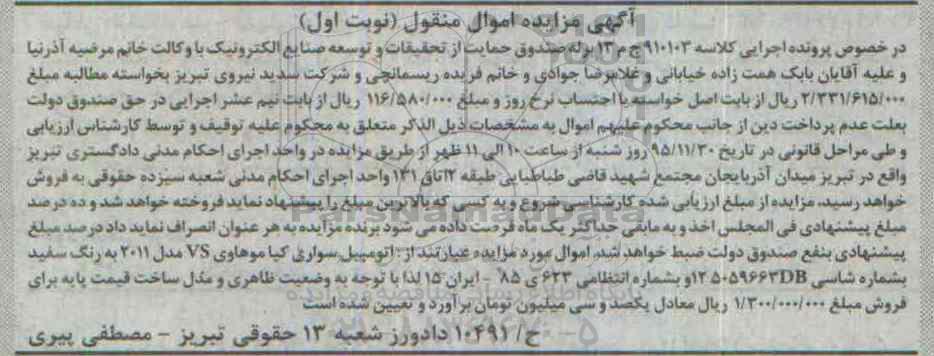 آگهی مزایده اموال منقول (نوبت اول)
در خصوص پرونده اجرایی کلاسه ۹۱۰۱۰۳ ج م ۱۳ برله صندوق حمایت از تحقیقات و توسعه صنایع الکترونیک با وکالت خانم مرضیه آذرنیا
و علیه آقایان بابک همت زاده خیابانی و غلامرضا جوادی و خانم فریده ریسمانچی و شرکت سدید نیروی تبریز بخواسته مطالبه مبلغ
۲/۳۳۱/۶۱۵/۰۰۰ ریال از بابت اصل خواسته با احتساب نرخ روز و مبلغ ۱۱۶/۵۸۰/۰۰۰ ریال از بابت نیم عشر اجرایی در حق صندوق دولت
بعلت عدم پرداخت دین از جانب محکوم علیهم اموال به مشخصات ذیل الذکر متعلق به محکوم علیه توقیف و توسط کارشناس ارزیابی
و طی مراحل قانونی در تاریخ ۹۵/۱۱/۳۰ روز شنبه از ساعت ۱۰ الی ۱۱ ظهر از طریق مزایده در واحد اجرای احکام مدنی دادگستری تبریز
واقع در تبریز میدان آذربایجان مجتمع شهید قاضی طباطبایی طبقه ۲ اتاق ۱۳۱ واحد اجرای احکام مدنی شعبه سیزده حقوقی به فروش
خواهد رسید، مزایده از مبلغ ارزیابی شده کارشناسی شروع و به کسی که بالاترین مبلغ را پیشنهاد نماید فروخته خواهد شد و ده درصد
مبلغ پیشنهادی فی المجلس اخذ و به مابقی حداکثر یک ماه فرصت داده می شود برنده مزایده به هر عنوان انصراف نماید داد درصد مبلغ
پیشنهادی بنفع صندوق دولت ضبط خواهد شد. اموال مورد مزایده عبارتند از: اتومبیل سواری کیا موهاوی VS مدل ۲۰۱۱ به رنگ سفید
بشماره شاسی ۱۲۵۰۵۹۶۶۳DB و بشماره انتظامی ۶۲۳ ی ۸۵ - ایران ۱۵ لذا با توجه به وضعیت ظاهری و مدل ساخت قیمت پایه برای
فروش مبلغ ۱/۳۰۰/۰۰۰/۰۰۰ ریال معادل یکصد و سی میلیون تومان برآورد و تعیین شده است
ح/۱۰۴۹۱ دادورز شعبه ۱۳ حقوقی تبریز - مصطفی پیری
ParsNamadData